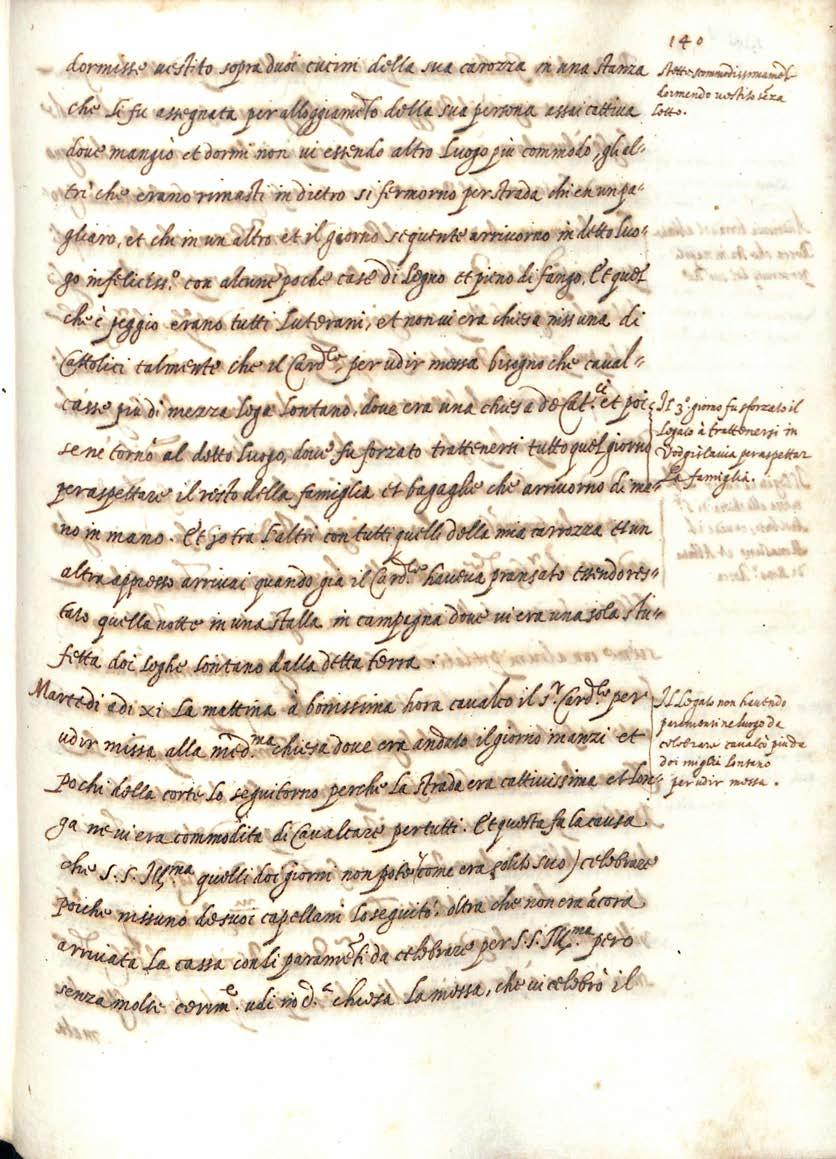 140
dormisse vestito sopra duoi cucini della sua carozza in una stanza
che li fu assegnata per alloggiamẽto della sua persona assai cattiva
dove mangiò et dormi non vi essendo altro luogo più commodo, gli al=
tri che erano rimasti in dietro si fermorno per strada chi en un pa=
gliaro, et chi in un altro et il giorno sequente arrivorno in detto luo=
go infeliciss.º con alcune poche case di legno et pieno di fango. Et quel
che è peggio erano tutti luterani, et non vi era chiesa nissuna di
Cattolici talmente che il Card.le, per udir messa bisogno che caval=
casse più di mezza lega lontano, dove era una chiesa de Cat.ci et poi
se ne tornò al detto luogo, dove fu forzato trattenersi tutto quel giorno
per aspettare il resto della famiglia et bagaglie che arrivorno di ma=
no in mano. Et io tra l'altri con tutti quelli della mia carrozza et un
altra appresso arrivai quando già il Card.le haveva pransato essendo res=
tato quella notte in una stalla in campagna dove vi era una sola stu=
fetta doi leghe lontano dalla detta terra.
Martedi adi xi la mattina à bonissima hora cavalco il s.r Card.le per
udir missa alla med.ma chiesa dove era andato il giorno inanzi et
pochi della corte lo seguitorno perche la strada era cattivissima et lon=
ga ne vi era commodita di cavalcare per tutti. Et questa fu la causa
che S. S. Ill.ma quelli doi giorni non pote (come era solito suo) celebrare
poiche nissuno de suoi capellani lo seguitò, oltra che non era ãcora
arrivata la cassa con li paramẽti da celebrare per S. S. Ill.ma pero
senza molte cerim.e udi in d.a chiesa la messa, che vi celebrò il
Stette scommodissimamẽte
dormendo vestito sẽza
letto.
Il 3º giorno fu sforzato il
Legato à trattenersi in
Vodgislavia per aspettar
la famiglia.
Il Legato non havendo
paramenti ne luogo da
celebrare cavalcò più da
doi miglia lontano
per udir messa.